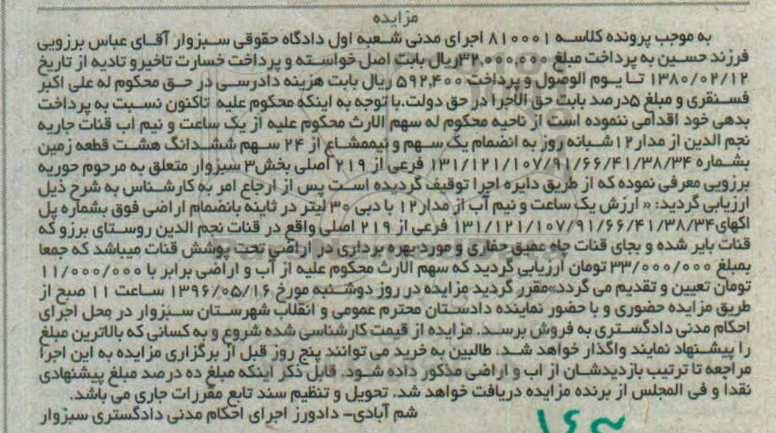 مزایده
به موجب پرونده کلاسه ۸۱۰۰۰۱ اجرای مدنی شعبه اول دادگاه حقوقی سبزوار آقای عباس برزویی
فرزند حسین به پرداخت مبلغ ۳۲,۰۰۰,۰۰۰ریال بابت اصل خواسته و پرداخت خسارت تاخیرو تادیه از تاریخ
۱۳۸۰/۰۲/۱۲ تا یوم الوصول و پرداخت ۵۹۲,۴۰۰ ریال بابت هزینه دادرسی در حق محکوم له علی اکبر
فسنقری و مبلغ ۵درصد بابت حق الاجرا در حق دولت.با توجه به اینکه محکوم علیه تاکنون نسبت به پرداخت
بدهی خود اقدامی ننموده است از ناحیه محکوم له سهم الارث محکوم علیه از یک ساعت و نیم اب قنات جاریه
نجم الدین از مدار۱۲شبانه روز به انضمام یک سهم و نیم‌مشاع از ۲۴ سهم ششدانگ هشت قطعه زمین
بشماره ۱۳۱/۱۲۱/۱۰۷/۹۱/۶۶/۴۱/۳۸/۳۴ فرعی از ۲۱۹ اصلی بخش۳ سبزوار متعلق به مرحوم حوریه
برزویی معرفی نموده که از طریق دایره اجرا توقیف گردیده است پس از ارجاع امر به کارشناس به شرح ذیل
ارزیابی گردید: « ارزش یک ساعت و نیم آب از مدار۱۲ با دبی ۳۰ لیتر در ثانیه بانضمام اراضی فوق بشماره پل
اکهای۱۳۱/۱۲۱/۱۰۷/۹۱/۶۶/۴۱/۳۸/۳۴ فرعی از ۲۱۹ اصلی واقع در قنات نجم الدین روستای برزو که
قنات بایر شده و بجای قنات چاه عمیق حفاری و مورد بهره برداری در اراضی تحت پوشش قنات میباشد که جمعا
بمبلغ ۳۳/۰۰۰/۰۰۰ تومان ارزیابی گردید که سهم الارث محکوم علیه از آب و اراضی برابر با ۱۱/۰۰۰/۰۰۰
تومان تعیین و تقدیم می گردد»مقرر گردید مزایده در روز دوشنبه مورخ ۱۳۹۶/۰۵/۱۶ ساعت ۱۱ صبح از
طریق مزایده حضوری و با حضور نماینده دادستان محترم عمومی و انقلاب شهرستان سبزوار در محل اجرای
احکام مدنی دادگستری به فروش برسد. مزایده از قیمت کارشناسی شده شروع و به کسانی که بالاترین مبلغ
را پیشنهاد نمایند واگذار خواهد شد. طالبین به خرید می توانند پنج روز قبل از برگزاری مزایده به این اجرا
مراجعه تا ترتیب بازدیدشان از اب و اراضی مذکور داده شود. قابل ذکر اینکه مبلغ ده درصد مبلغ پیشنهادی
نقدا و فی المجلس از برنده مزایده دریافت خواهد شد. تحویل و تنظیم سند تابع مقررات جاری می باشد.
شم آبادی- دادورز اجرای احکام مدنی دادگستری سبزوار